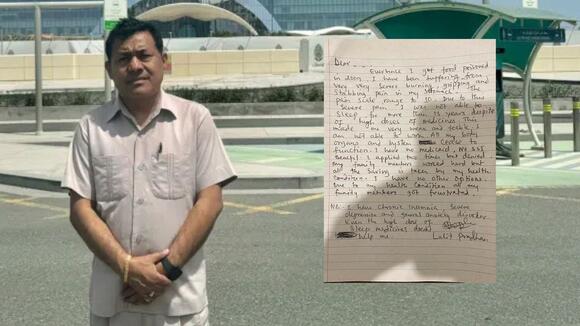 Dear
Everhence I got food poisoned
in 2007, I have been suffering from
very very severe burning, gripping and
stabbing pain in my The
pain scale range to 10. Due to this
severe pain I was not able to
sleep for more than 15 years despite
of high doses of medicines. This
made me very weak and feeble, I
am not able to work. All my body
organs and system cease to
function. I have no medicaid, No SSI
benefit. I applied two times but denied
my family members worked hard but
all the saving is taken by my health
condition. I have no other options.
Due to my health condition all my
family members got frustrated.
NB I have chronic insomnia, severe
depression and general anxiety disorder
even the high dose of
sleep medicines doesn't
help me. Lalit Pradhan